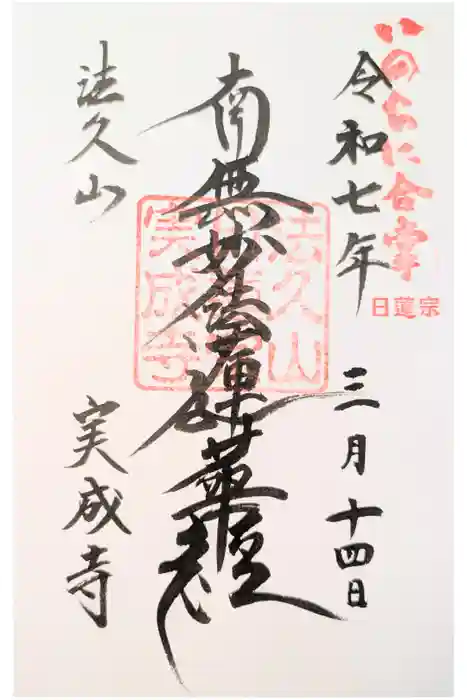 いのちに合掌
日蓮宗
令和七年 三月十四日
南無妙法蓮華経
法久山 実成寺
法久山
実成寺